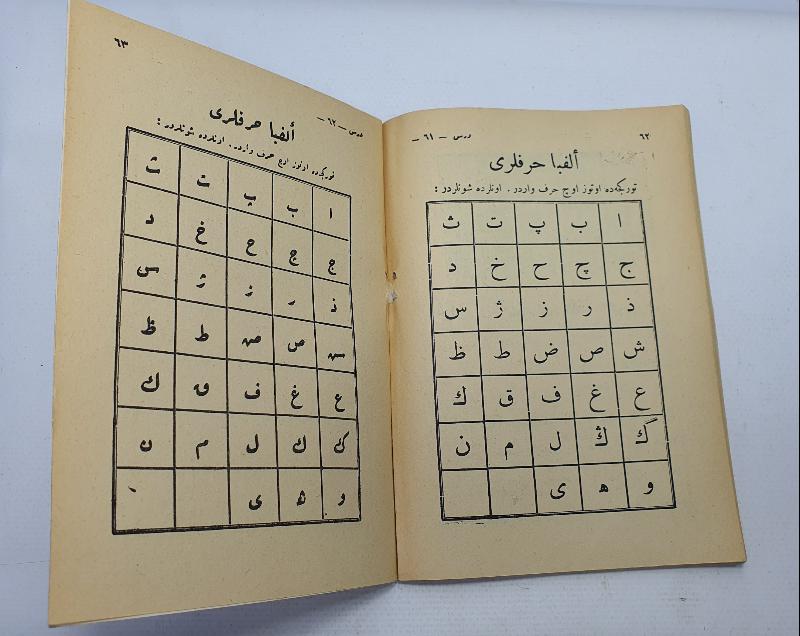 ٦٢
درس — ٦١ —
ألفبا حرفلری
تورکجه‌ده اوتوز اوچ حرف واردر. اونلرده شونلردر :
ا ب پ ت ث
ج چ ح خ د
ذ ر ز ژ س
ش ص ض ط ظ
ع غ ف ق ك
گ ڭ ل م ن
و ه ی
٦٣
درس — ٦٢ —
ألفبا حرفلری
تورکجه‌ده اوتوز اوچ حرف واردر. اونلرده شونلردر :
ا ب پ ت ث
ج چ ح خ د
ذ ر ز ژ س
ش ص ض ط ظ
ع غ ف ق ك
گ ڭ ل م ن
و ه ی